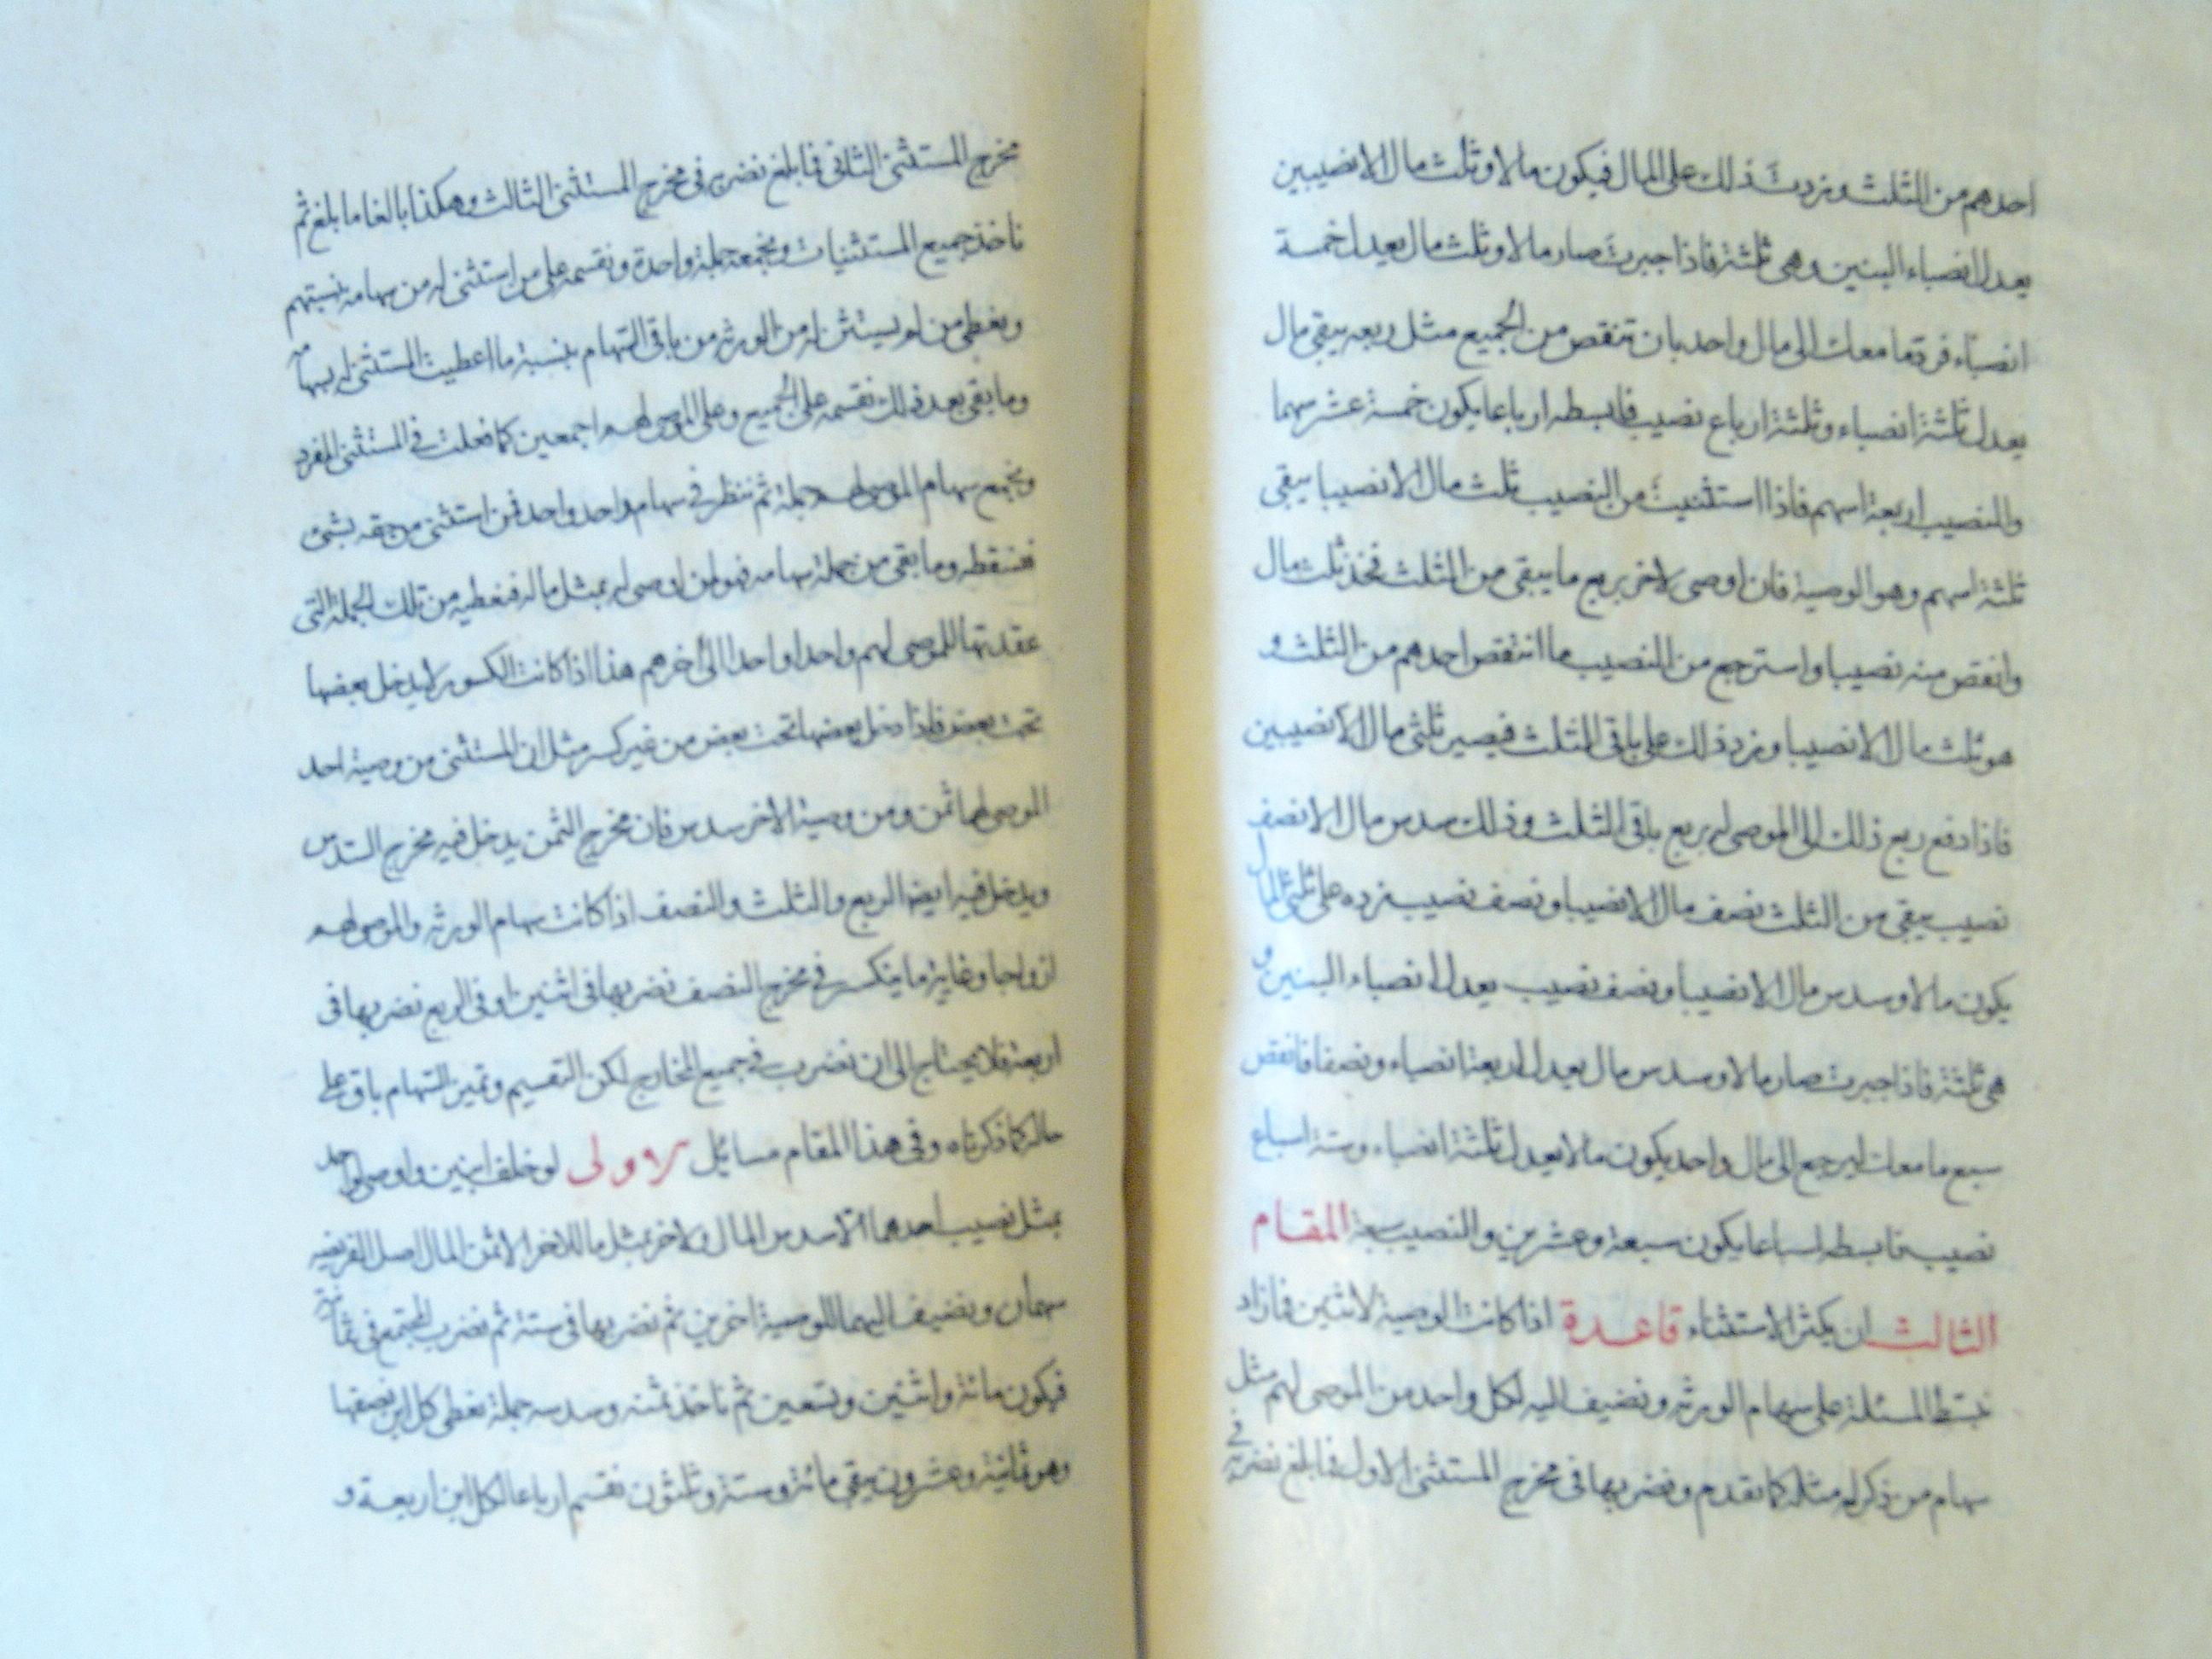 احدهم من الثلث وزدت ذلك على المال فيكون مالا وثلث مال الا نصيبين
يعدل انصباء البنين وهى ثلثة فاذا جبرت صار مالا وثلث مال يعدل خمسة
انصباء فرد ما معك الى مال واحد بان تنقص من الجميع مثل ربعه يبقى مال
يعدل ثلثة انصباء وثلثة ارباع نصيب فابسطه ارباعا يكون خمسة عشر سهما
والنصيب اربعة اسهم فاذا استثنيت من النصيب ثلث مال الا نصيبا يبقى
ثلثة اسهم وهو الوصية فان اوصى لاخر بربع ما يبقى من الثلث فخذ ثلث مال
وانقص منه نصيبا واسترجع من النصيب ما انتقص احدهم من الثلث و
هو ثلث مال الا نصيبا وزد ذلك على باقى الثلث فيصير ثلثى مال الا نصيبين
فاذا دفع ربع ذلك الى الموصى له بربع باقى الثلث وذلك سدس مال الا نصف
نصيب يبقى من الثلث نصف مال الا نصيبا ونصف نصيب نزده على ثلثى المال
يكون مالا وسدس مال الا نصيبا ونصف نصيب يعدل انصباء البنين و
هى ثلثة فاذا جبرت صار مالا وسدس مال يعدل اربعة انصباء ونصفا فانقص
سبع ما معك ليرجع الى مال واحد يكون مالا يعدل ثلثة انصباء وستة اسباع
نصيب فابسطه اسباعا يكون سبعة وعشرين والنصيب سبعة المقام
الثالث ان يكثر الاستثناء قاعدة اذا كانت الوصية لاثنين فما زاد
فبسط المسئلة على سهام الورثة ونضيف اليه لكل واحد من الموصى لهم مثل
سهام من ذكر له مثله كما تقدم ونضربها فى مخرج المستثنى الاول فما بلغ نضربه فى
مخرج المستثنى الثانى فما بلغ نضربه فى مخرج المستثنى الثالث وهكذا بالغا ما بلغ ثم
ناخذ جميع المستثنيات ونجمعه جملة واحدة ونقسمه على من استثنى له من سهامه بنسبتهم
ونعطى من لم يستثن له من الورثة من باقى السهام بنسبة ما اعطيت المستثنى له بسهامه
وما بقى بعد ذلك نقسمه على الجميع وعلى الموصى لهم اجمعين كما فعلت فى المستثنى المفرد
ونجمع سهام الموصى لهم جملة ثم ننظر فى سهام واحد واحد فمن استثنى من حقه بشئ
فنسقطه وما بقى من جملة سهامه فهو لمن اوصى له بمثل ماله فنعطيه من تلك الجملة التى
عقدتها للموصى لهم واحدا واحدا الى اخرهم هذا اذا كانت الكسور لا يدخل بعضها
تحت بعض فاذا دخل بعضها تحت بعض من غير كسر مثل ان المستثنى من وصية احد
الموصى لهما ثمن ومن وصية الاخر سدس فان مخرج الثمن يدخل فيه مخرج السدس
ويدخل فيه ايضا الربع والثلث والنصف اذا كانت سهام الورثة والموصى لهم
ازواجا وغاية ما ينكسر فى مخرج النصف نضربها فى اثنين او فى الربع نضربها فى
اربعة فلا يحتاج الى ان نضرب فى جميع المخارج لكن التقسيم وتميز السهام باق على
حاله كما ذكرناه وفى هذا المقام مسائل الاولى لو خلف ابنين واوصى لواحد
بمثل نصيب احدهما الا سدس المال ولاخر بمثل ما للاخر الا ثمن المال اصل الفريضة
سهمان ونضيف اليهما للوصية اخرين ثم نضربها فى ستة ثم نضرب المجتمع فى ثمانية
فيكون مائة واثنين وتسعين ثم ناخذ ثمنه وسدسه جملة نعطى كل ابن نصفها
وهو ثمانية وعشرون يبقى مائة وستة وثلثون نقسم ارباعا لكل ابن اربعة و